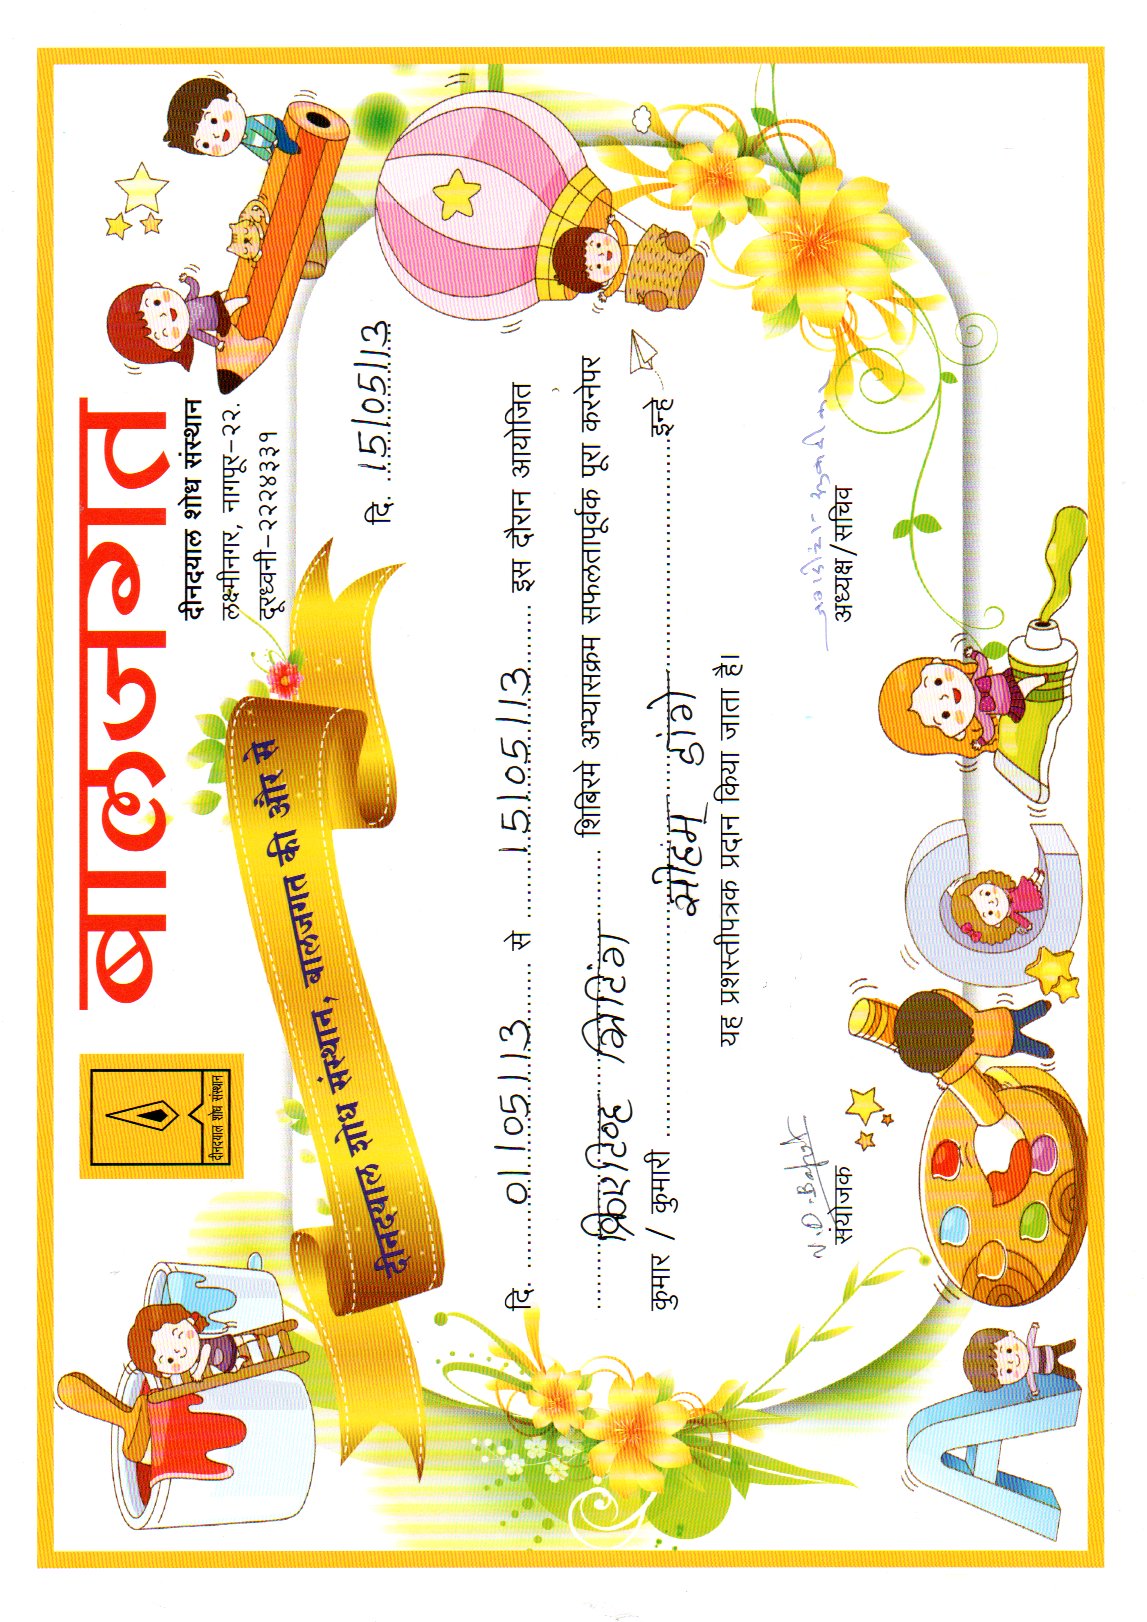 बालजगत
दीनदयाल शोध संस्थान
दीनदयाल शोध संस्थान
लक्ष्मीनगर, नागपूर-२२.
दूरध्वनी-२२२४३३१
दीनदयाल शोध संस्थान, बालजगत की और से
दि. 15|05|13
दि. 01|05|13 से 15|05|13 इस दौरान आयोजित
क्रिएटिव्ह प्रिंटिंग शिबिरमे अभ्यासक्रम सफलतापूर्वक पूरा करनेपर
कुमार / कुमारी सोहम डांगे इन्हे
यह प्रशस्तीपत्रक प्रदान किया जाता है।
V.D. Bapat
संयोजक
अध्यक्ष/सचिव